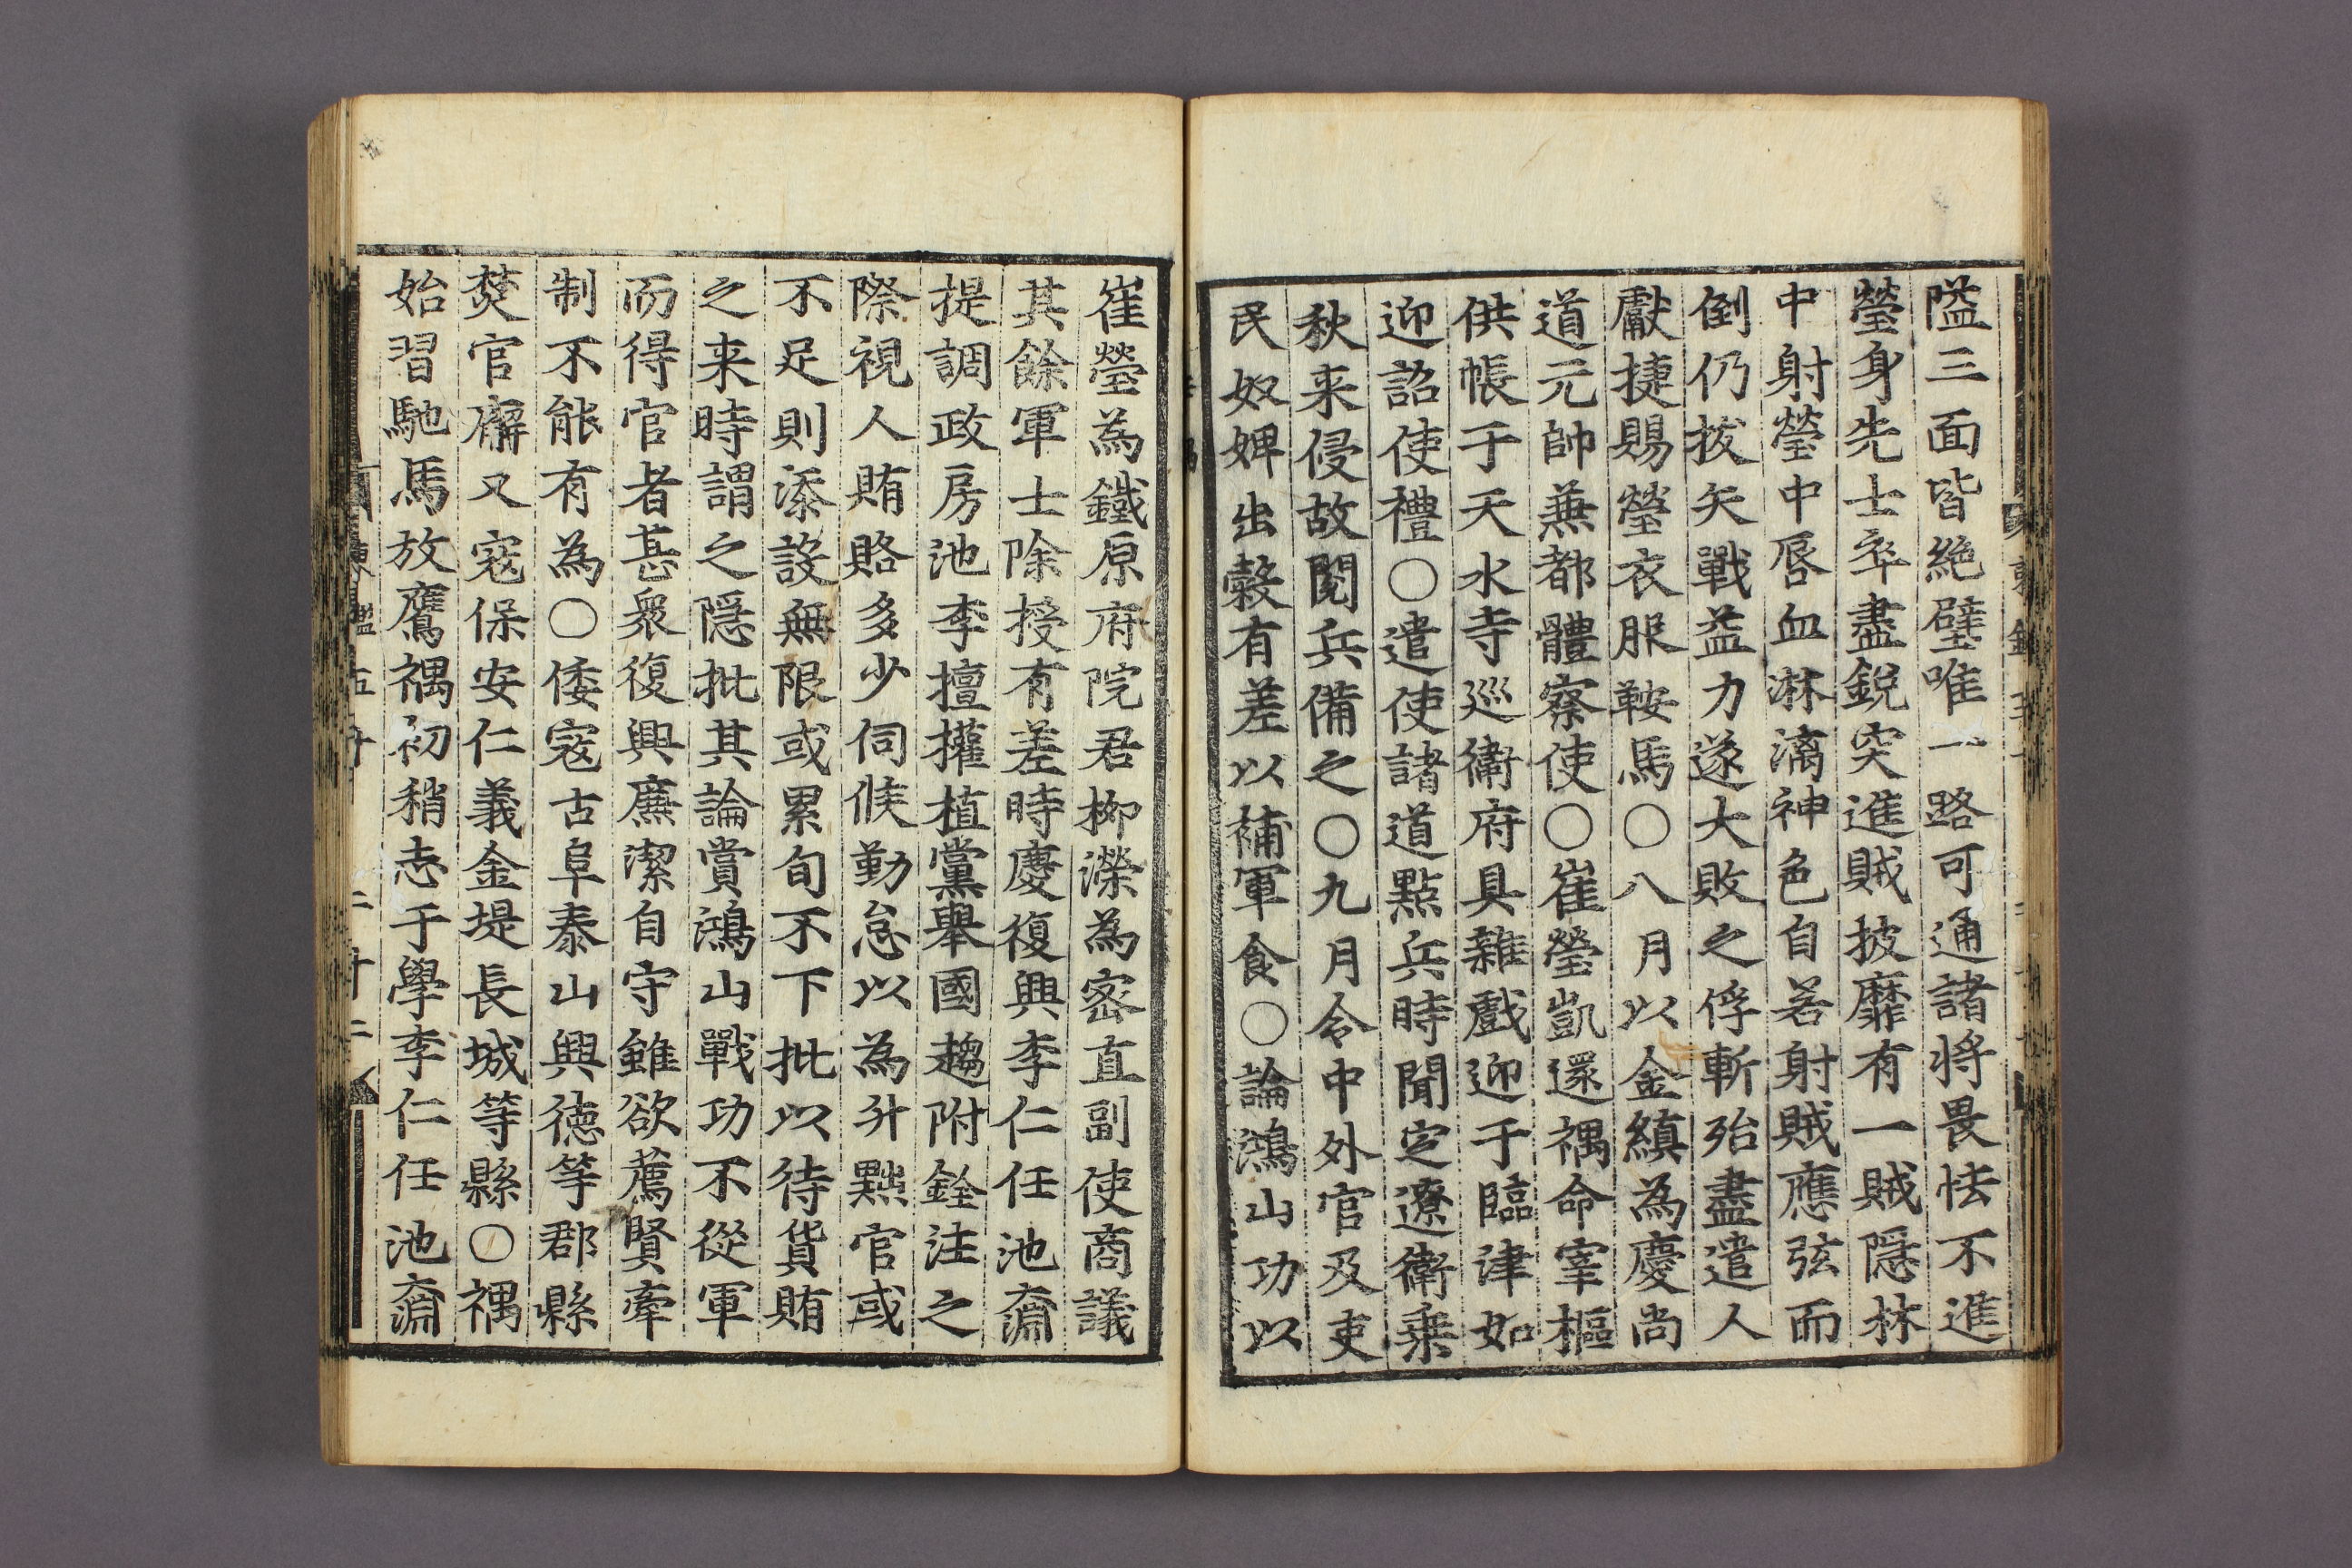 隘三面皆絶壁唯一路可通諸将畏怯不進
瑩身先士卒盡銳突進賊披靡有一賊隱林
中射瑩中唇血淋漓神色自若射賊應弦而
倒仍拔矢戰益力遂大敗之俘斬殆盡遣人
獻捷賜瑩衣服鞍馬○八月以金縝為慶尚
道元帥兼都體察使○崔瑩凱還禑命宰樞
供帳于天水寺巡衛府具雜戲迎于臨津如
迎詔使禮○遣使諸道點兵時聞定遼衛乗
秋来侵故閱兵備之○九月令中外官及吏
民奴婢出糓有差以補軍食○論鴻山功以
崔瑩為鐵原府院君柳濚為密直副使商議
其餘軍士除授有差時慶復興李仁任池奫
提調政房池李擅權植黨舉國趨附銓注之
際視人賄賂多少伺候勤怠以為升黜官或
不足則添設無限或累旬不下批以待貨賄
之来時謂之隱批其論賞鴻山戰功不從軍
而得官者甚衆復興廉潔自守雖欲薦賢牽
制不能有為○倭寇古阜泰山興德等郡縣
焚官廨又寇保安仁義金堤長城等縣○禑
始習馳馬放鷹禑初稍志于學李仁任池奫